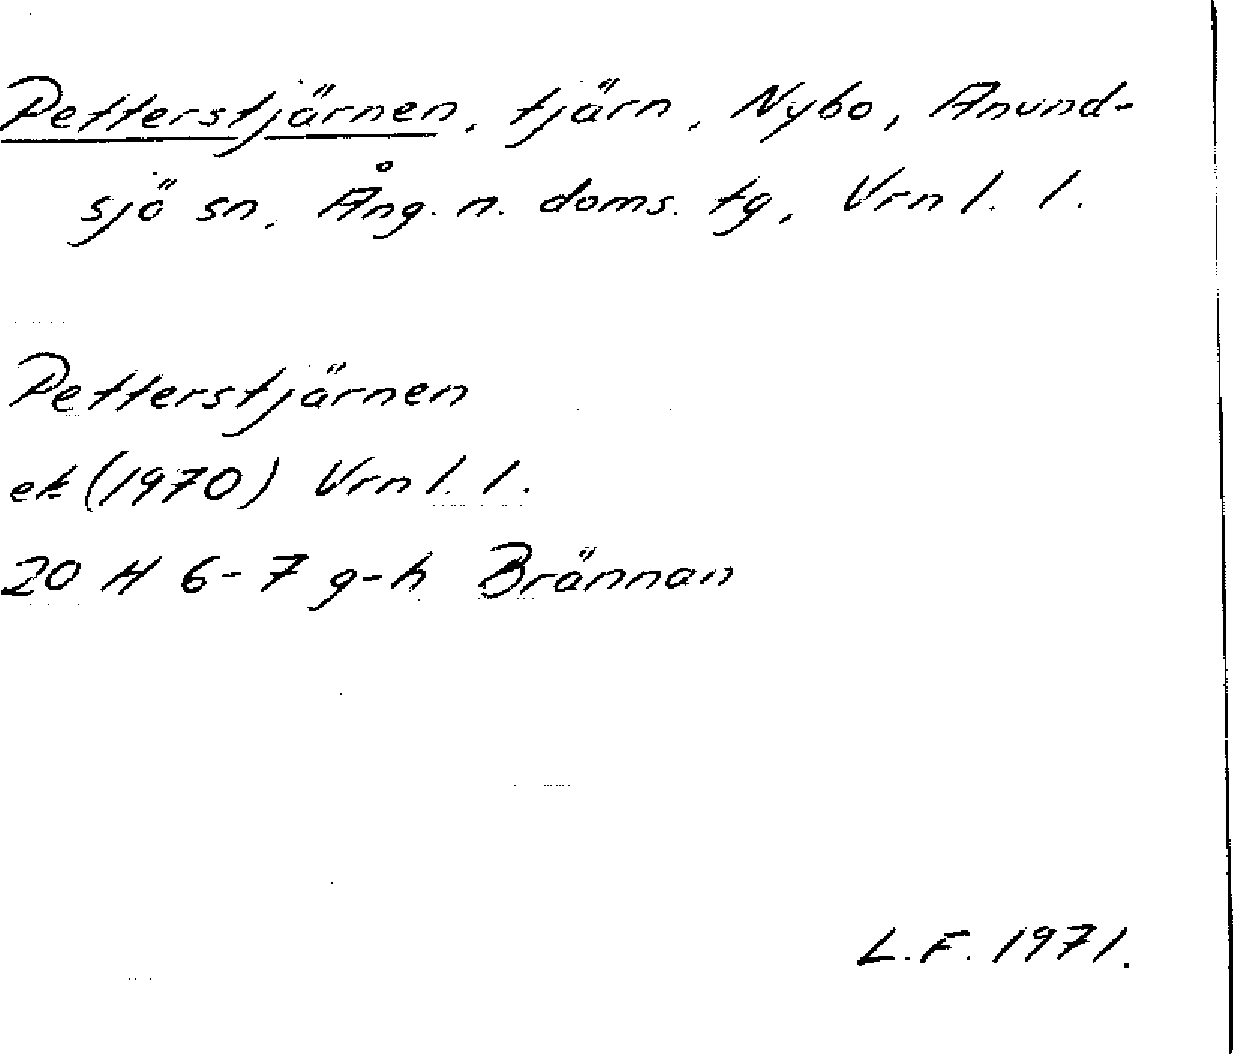 Petterstjärnen, tjärn, Nybo, Anund-
sjö sn, Ång. n. doms. tg, Vrnl. l.
Petterstjärnen
ek (1970) Vrnl. l.
20 H 6-7 g-h Brännan
L.F. 1971.